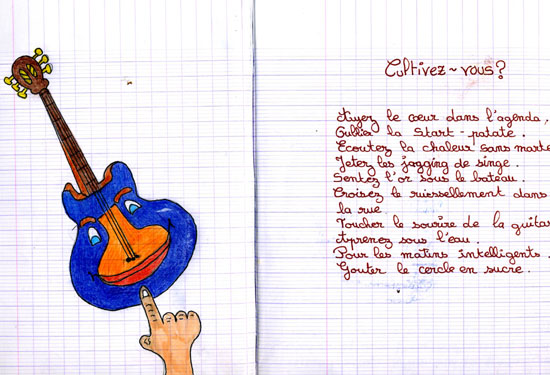 Cultivez-vous?
Fuyez le cœur dans l'agenda,
la Start-patate.
Ecoutez la chaleur sans
Jetez les jogging de singe.
Sentez l'or sous le bateau.
Croisez le ruissellement dans
la rue
Toucher le sourire de la
Aprenez sous l'eau.
Pour les matins intelligents.
Gouter le cercle en sucre.